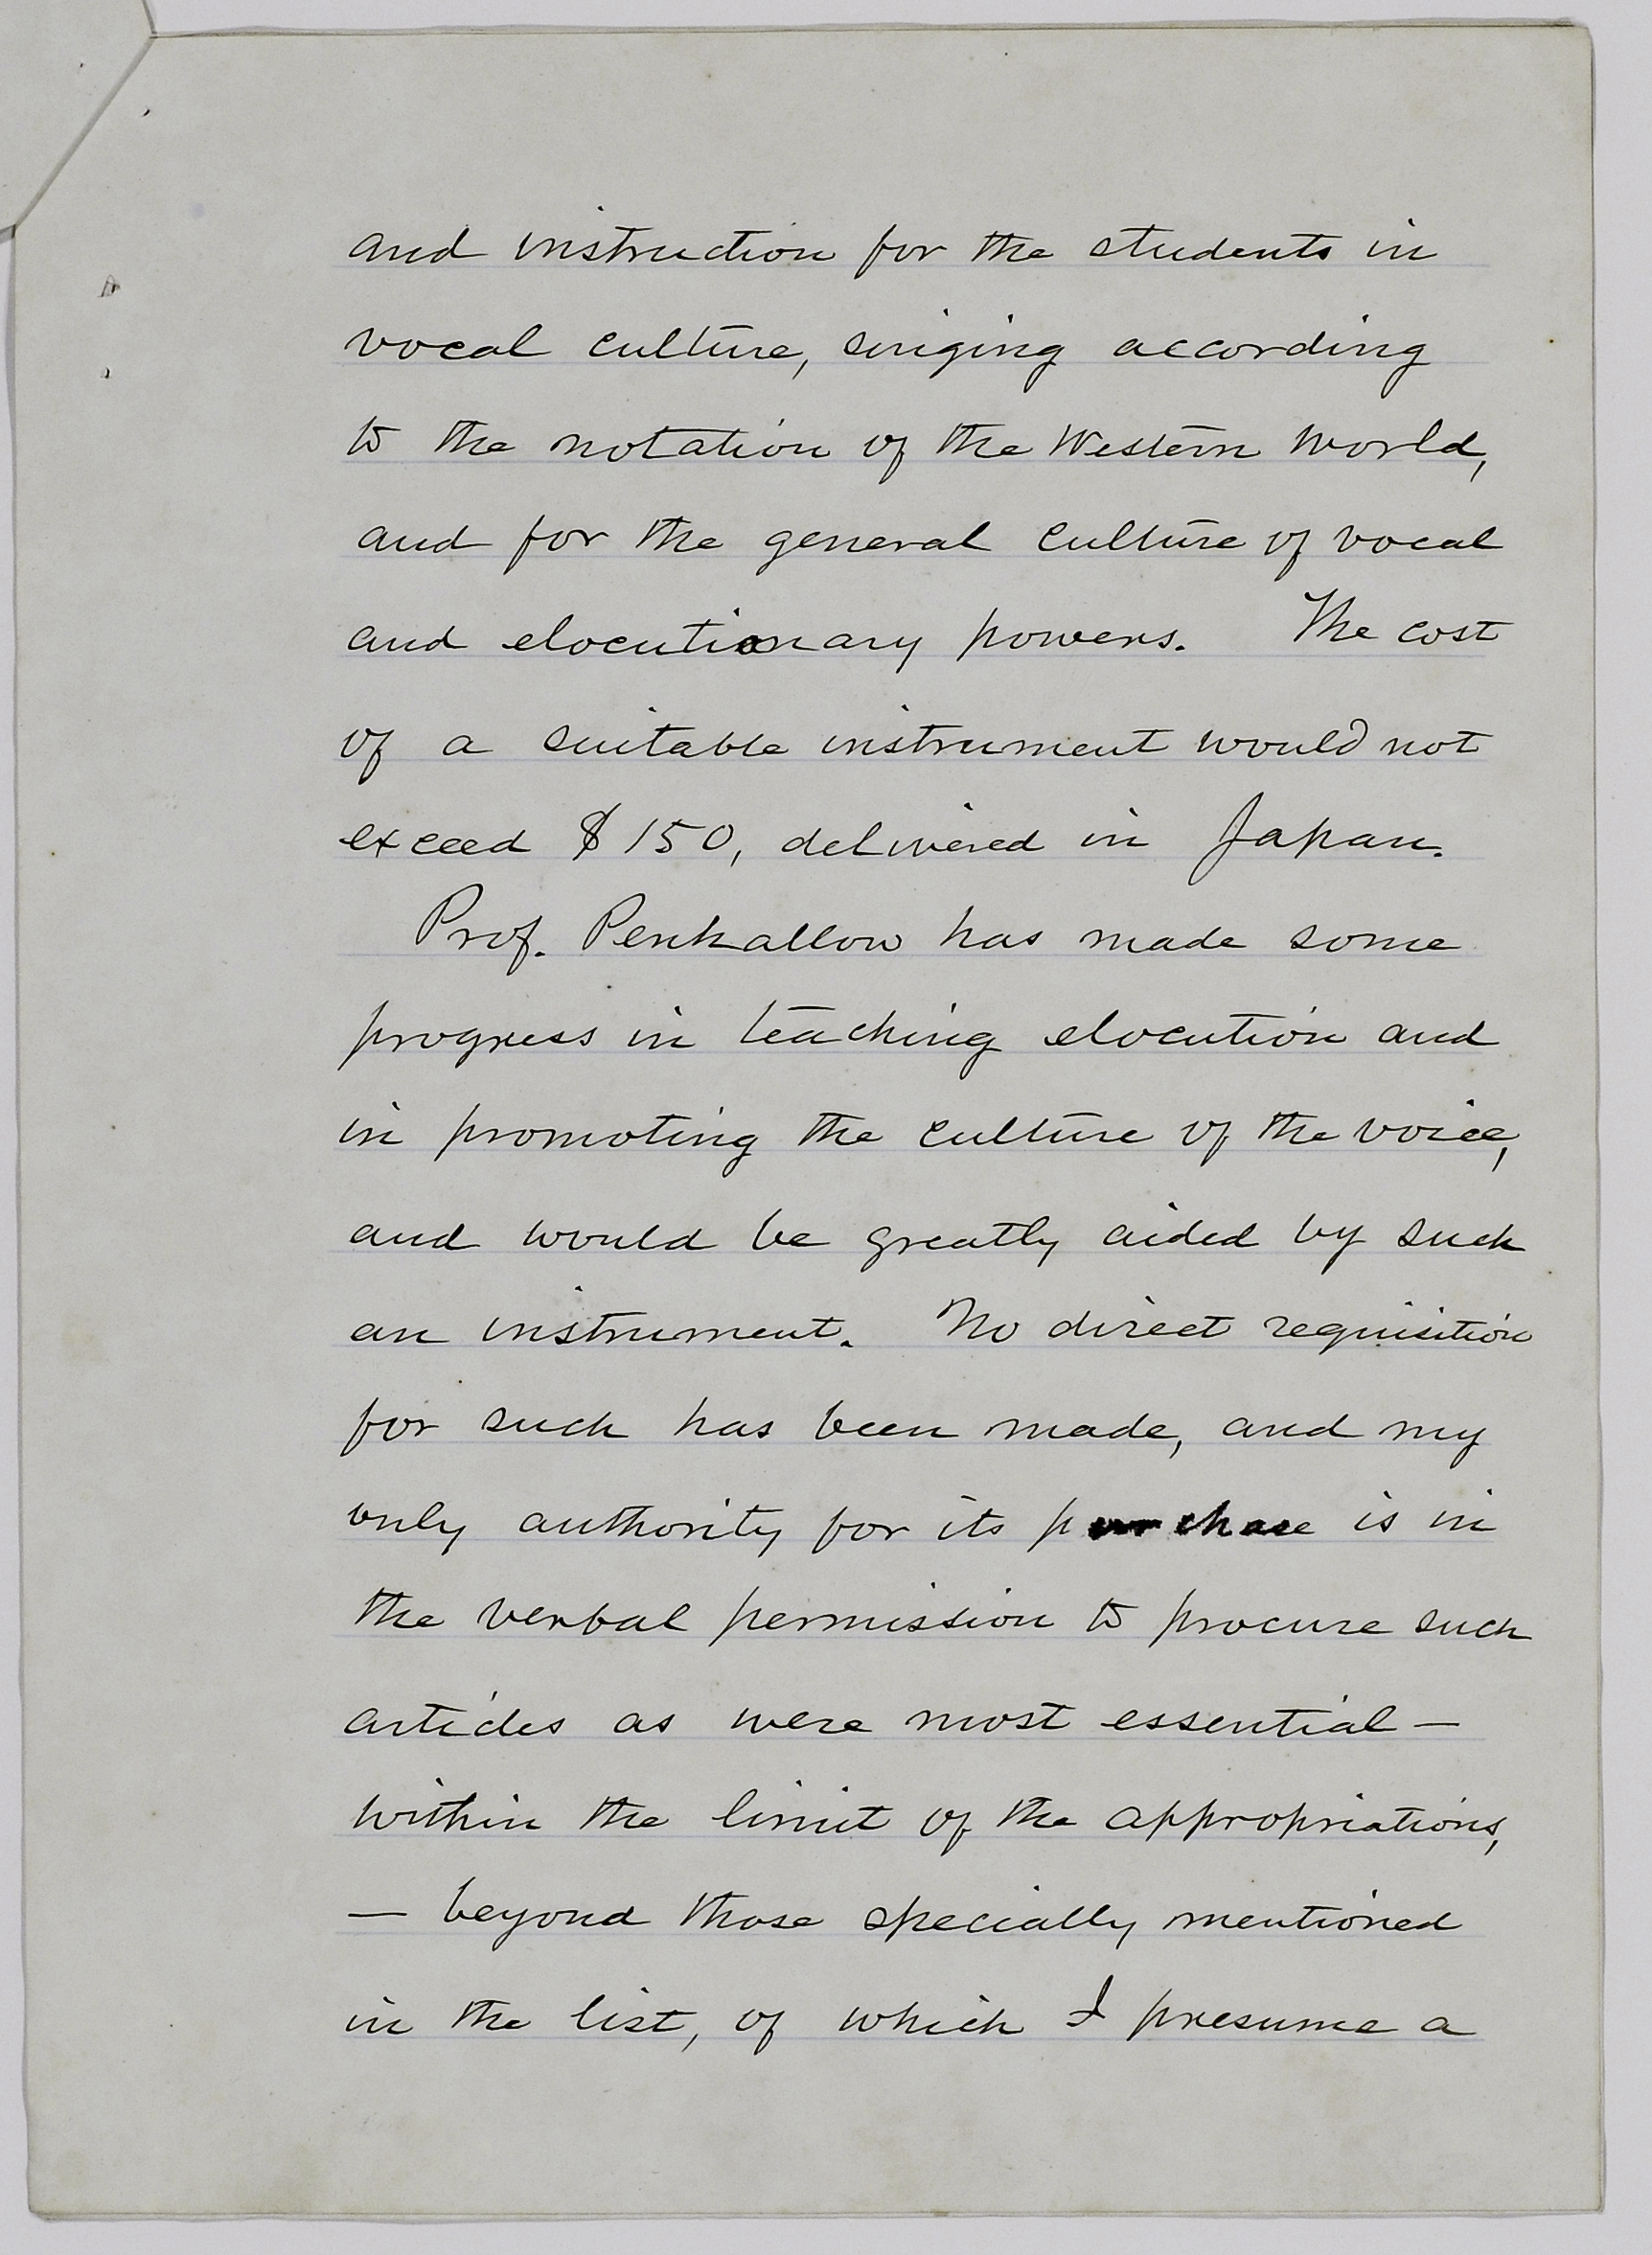 and instruction for the students in
vocal culture, singing according
to the notation of the Western World,
and for the general culture of vocal
and elocutionary powers. The cost
of a suitable instrument would not
exceed $150, delivered in Japan.
Prof. Penhallow has made some
progress in teaching elocution and
in promoting the culture of the voice,
and would be greatly aided by such
an instrument. No direct requisition
for such has been made, and my
only authority for its purchase is in
the verbal permission to procure such
articles as were most essential —
within the limit of the appropriations,
— beyond those specially mentioned
in the list, of which I presume a